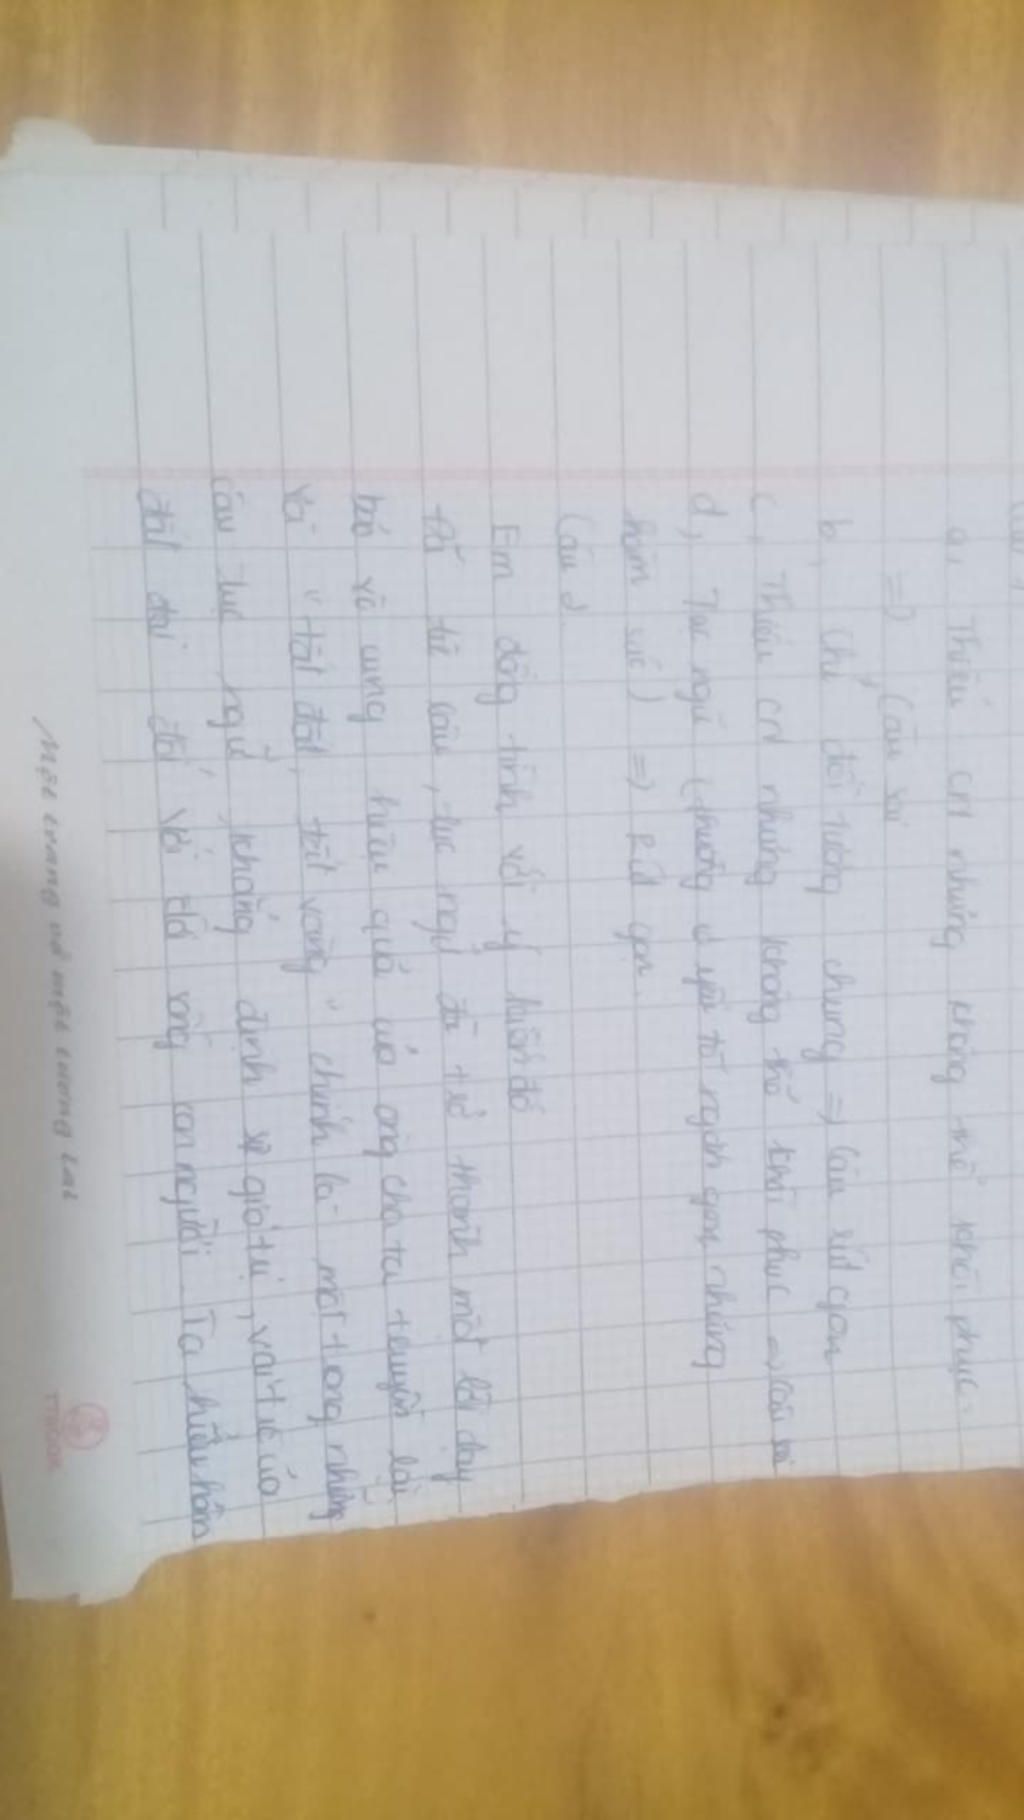 Câu 1
a, Thiếu CN nhưng không thể khôi phục.
=> Câu sai
b, Chỉ đối tượng chung => Câu rút gọn
c, Thiếu CN nhưng không thể khôi phục => Câu sai
d, Tục ngữ (thường có yếu tố ngắn gọn nhưng
hàm súc) => Rút gọn.
Câu 2.
Em đồng tình với ý kiến đó
Từ lâu, tục ngữ đã trở thành một lời dạy
hữu quả của ông cha ta truyền lại
Và "tấc đất, tấc vàng" chính là một trong những
câu tục ngữ khẳng định giá trị, vai trò của
đất đai đối với đời sống con người. Ta hiểu hơn
Một trang vở một tương lai